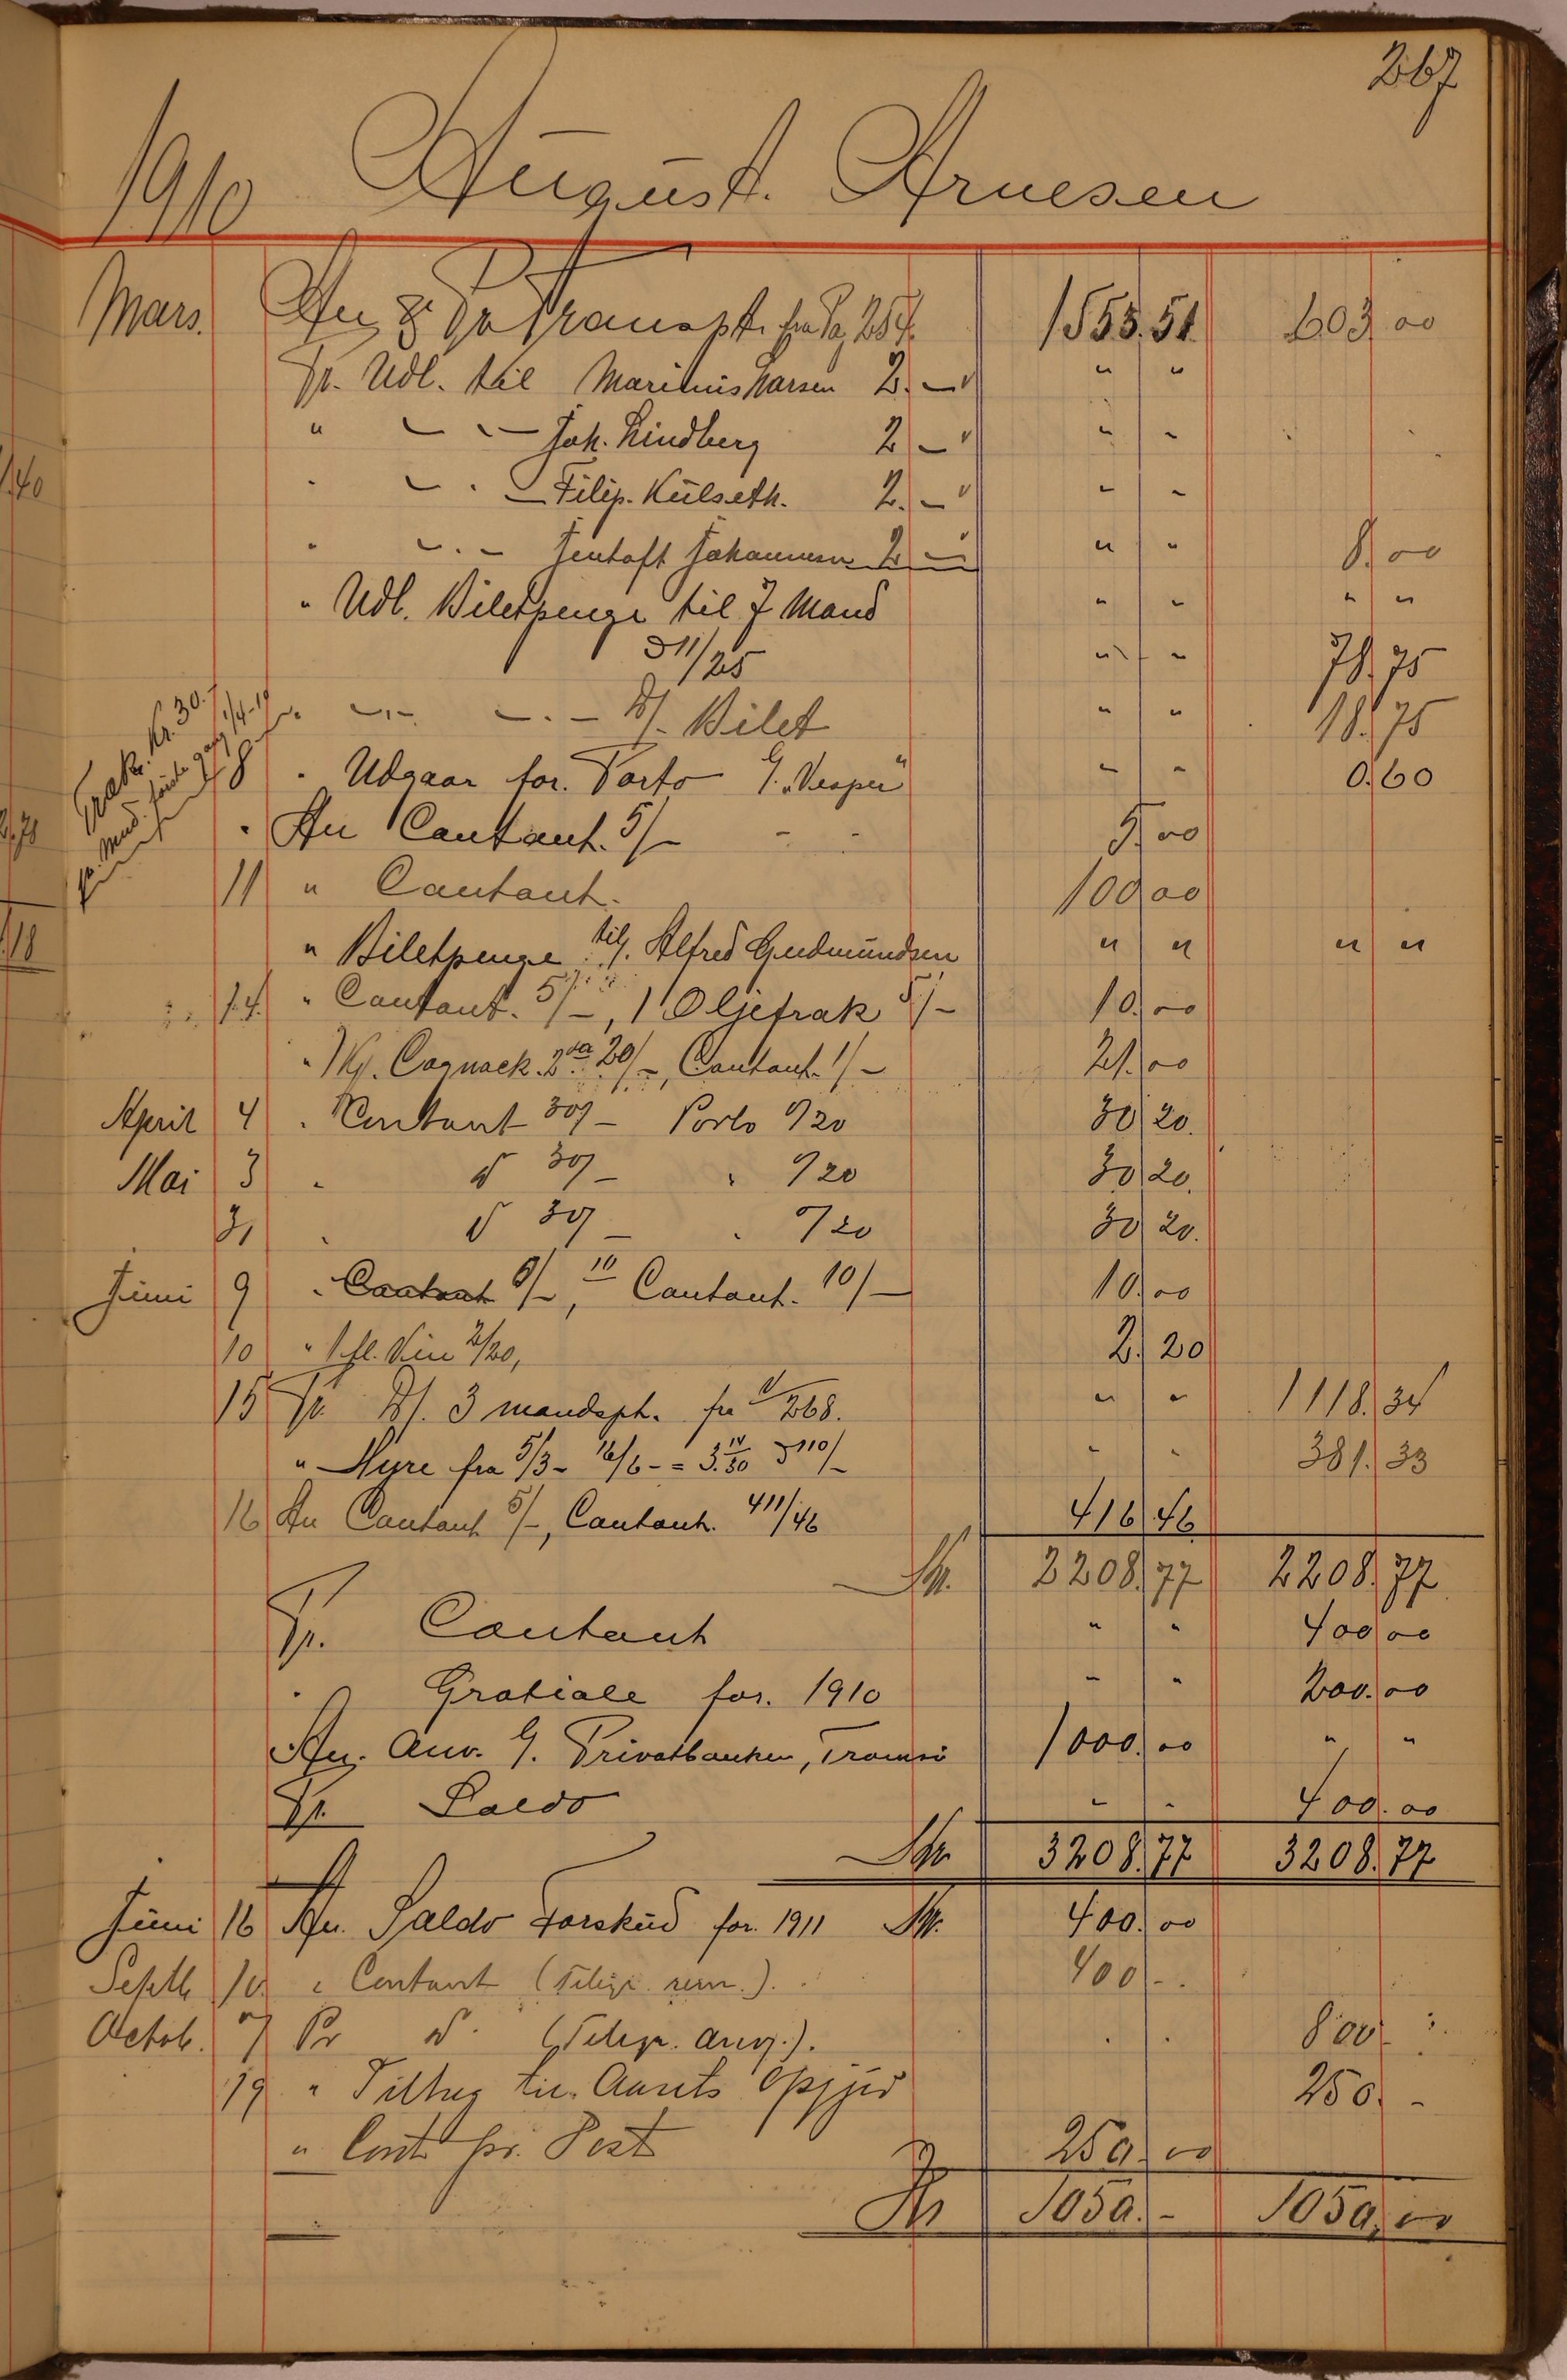 267
1910 August. Arnesen
Mars. An & Pr Transpt. fra Pag 254. 1553.51 603 00
Pr. Udl. til Marinius Larsen 2.— " "
" — " — Joh. Lindberg 2 — " "
" — " — Filip. Külseth. 2.— " "
" — " — Jentoft Johannesen 2 — " " 8.00
" Udl. Biletpenge til 7 Mand " " " "
à 11/25 " " 78.75
" —"— —"— D/. Bilet " " 18.75
Trak. Kr. 30.
pr. Mnd. første gang 1/4-10
8 " Udgaar for. Porto G. "Vesper" " " 0.60
" An Contant. 5/— 5.00
11 " Contant. 100.00
" Biletpenge til G. Alfred Gudmundsen " " " "
14. " Contant. 5/—, 1 Oljefrak 5/— 10.00
" 1 Kg. Cognack. 20/—, Contant. 1/— 21.00
April 4 " Contant 30/— Porto "/20 30 20.
Mai 3 " d 30/— " "/20 30 20.
31 " d 30/— " "/20 30 20.
Juni 9 " Contant /—, 10 Contant. 10/— 10.00
10 " 1 fl. Vin 2/20, 2.20
15 Pr. D/. 3 mandspt. fra 268. " " 1118.34
" Hyre fra 5/3 - 16/6 - = 3. à 110/— " " 381.33
16 An Contant 5/—, Contant. 411/46 416.46
Kr. 2208.77 2208.77
Pr. Contant " " 400.00
" Gratiale for. 1910 " " 200.00
An. Anv. G. Privatbanken, Tromsö 1000.00 " "
Pr. Saldo " " 400.00
Kr 3208.77 3208.77
Juni 16 An. Saldo Forskud for. 1911 Kr. 400.00
Septb 10 " Contant (Telegr. rem.). 400 -.
Octob. 7 Pr d. (Telegr. anv.). 800 -
19 " Tillæg til Aarets Opgjør 250. -
" Cont pr. Post 250.00
Kr 1050.- 1050,00